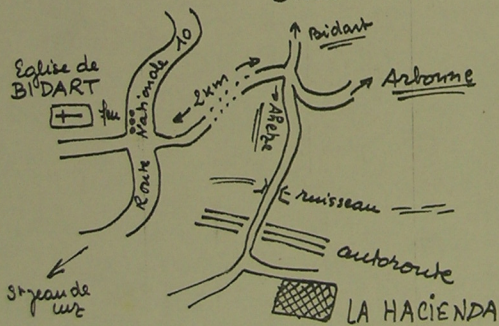 Eglise de
BIDART
feu
Route Nationale 10
2 km
Bidart
Arbonne
Ahetze
ruisseau
autoroute
St Jean de
Luz
LA HACIENDA